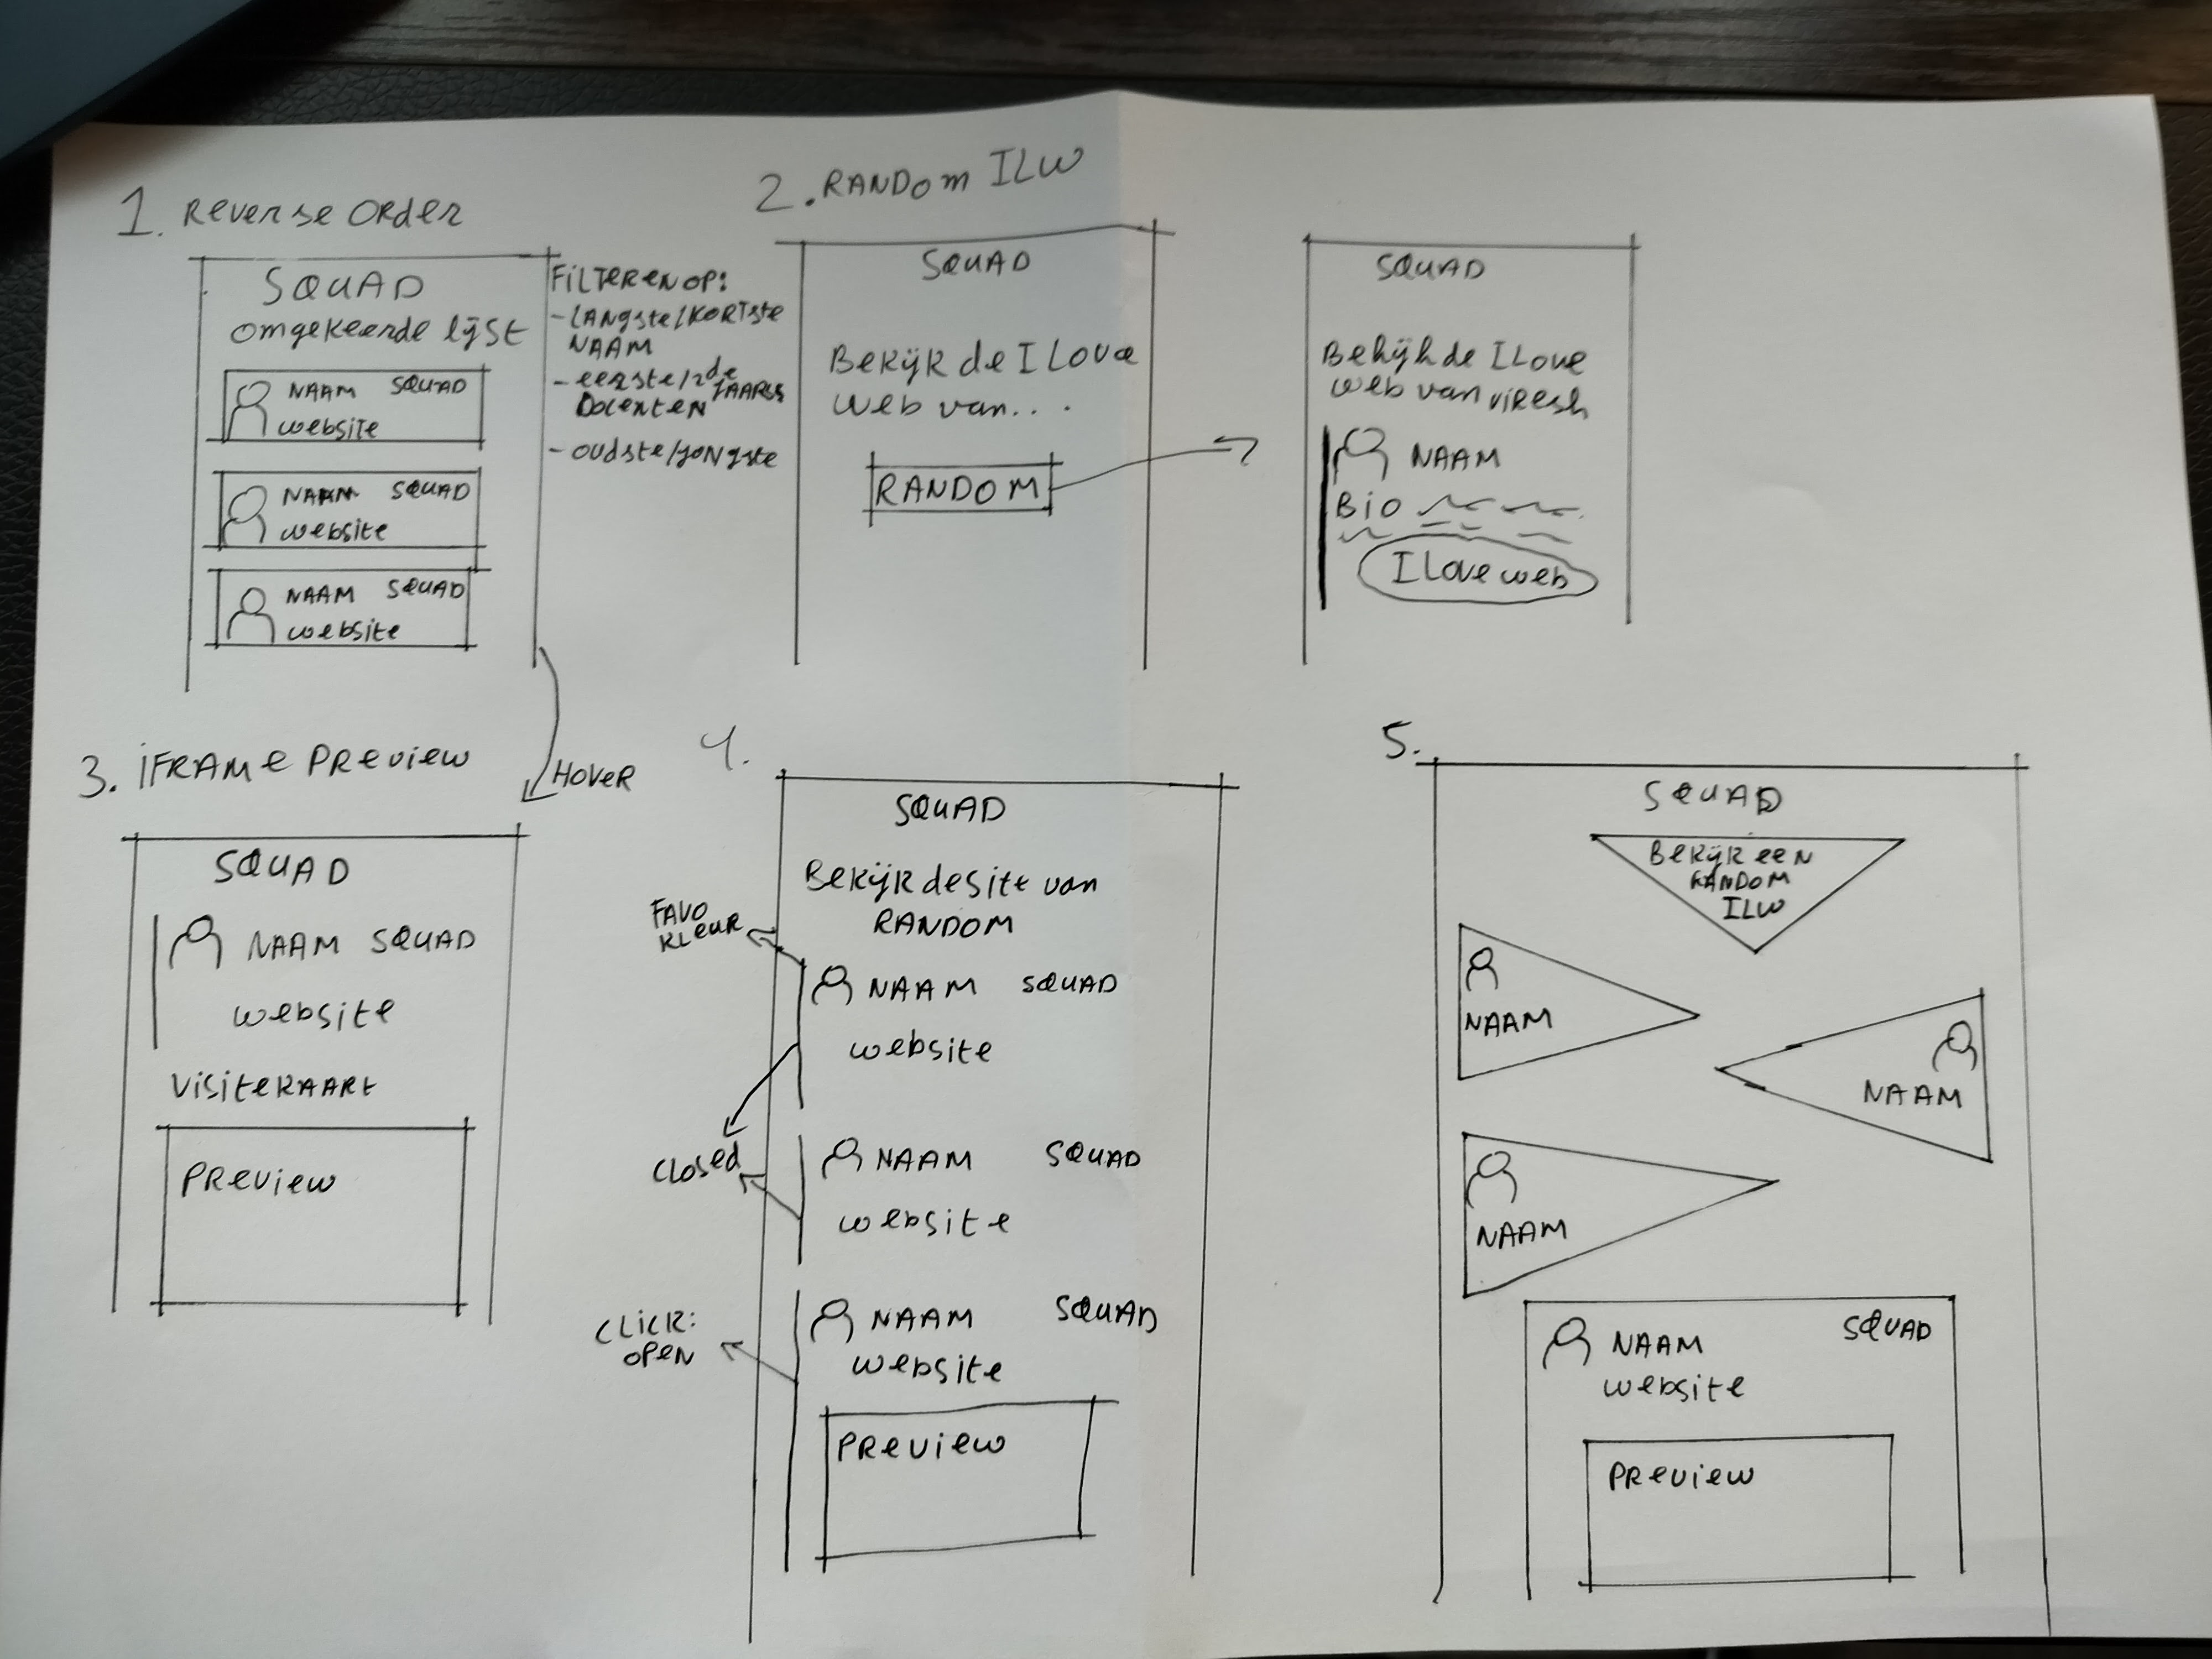 1. Reverse Order
SQUAD
omgekeerde lijst
NAAM SQUAD
website
NAAM SQUAD
website
NAAM SQUAD
website
FILTEREN OP:
- LANGSTE/KORTSTE
NAAM
- eerste/2de
JAARS
DOCENTEN
- OUDSTE/JONGSTE
2. RANDOM ILW
SQUAD
Bekijk de I Love
web van...
RANDOM
SQUAD
Bekijk de I Love
web van viresh
NAAM
Bio
I Love web
3. IFRAME PREVIEW
HOVER
SQUAD
NAAM SQUAD
website
VISITEKAART
PREVIEW
4.
SQUAD
Bekijk de site van
RANDOM
FAVO
KLEUR
NAAM SQUAD
website
CLOSED
NAAM SQUAD
website
CLICK:
OPEN
NAAM SQUAD
website
PREVIEW
5.
SQUAD
BEKIJK EEN
RANDOM
ILW
NAAM
NAAM
NAAM
NAAM SQUAD
website
PREVIEW